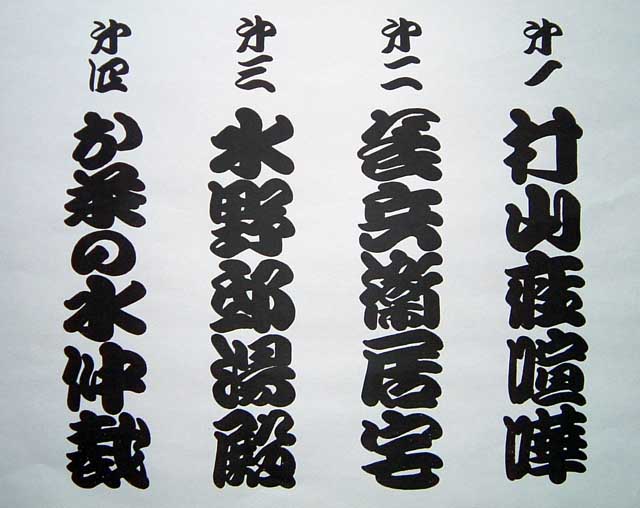 第一 村山座喧嘩
第二 長兵衛居宅
第三 水野邸湯殿
第四 お茶の水仲裁